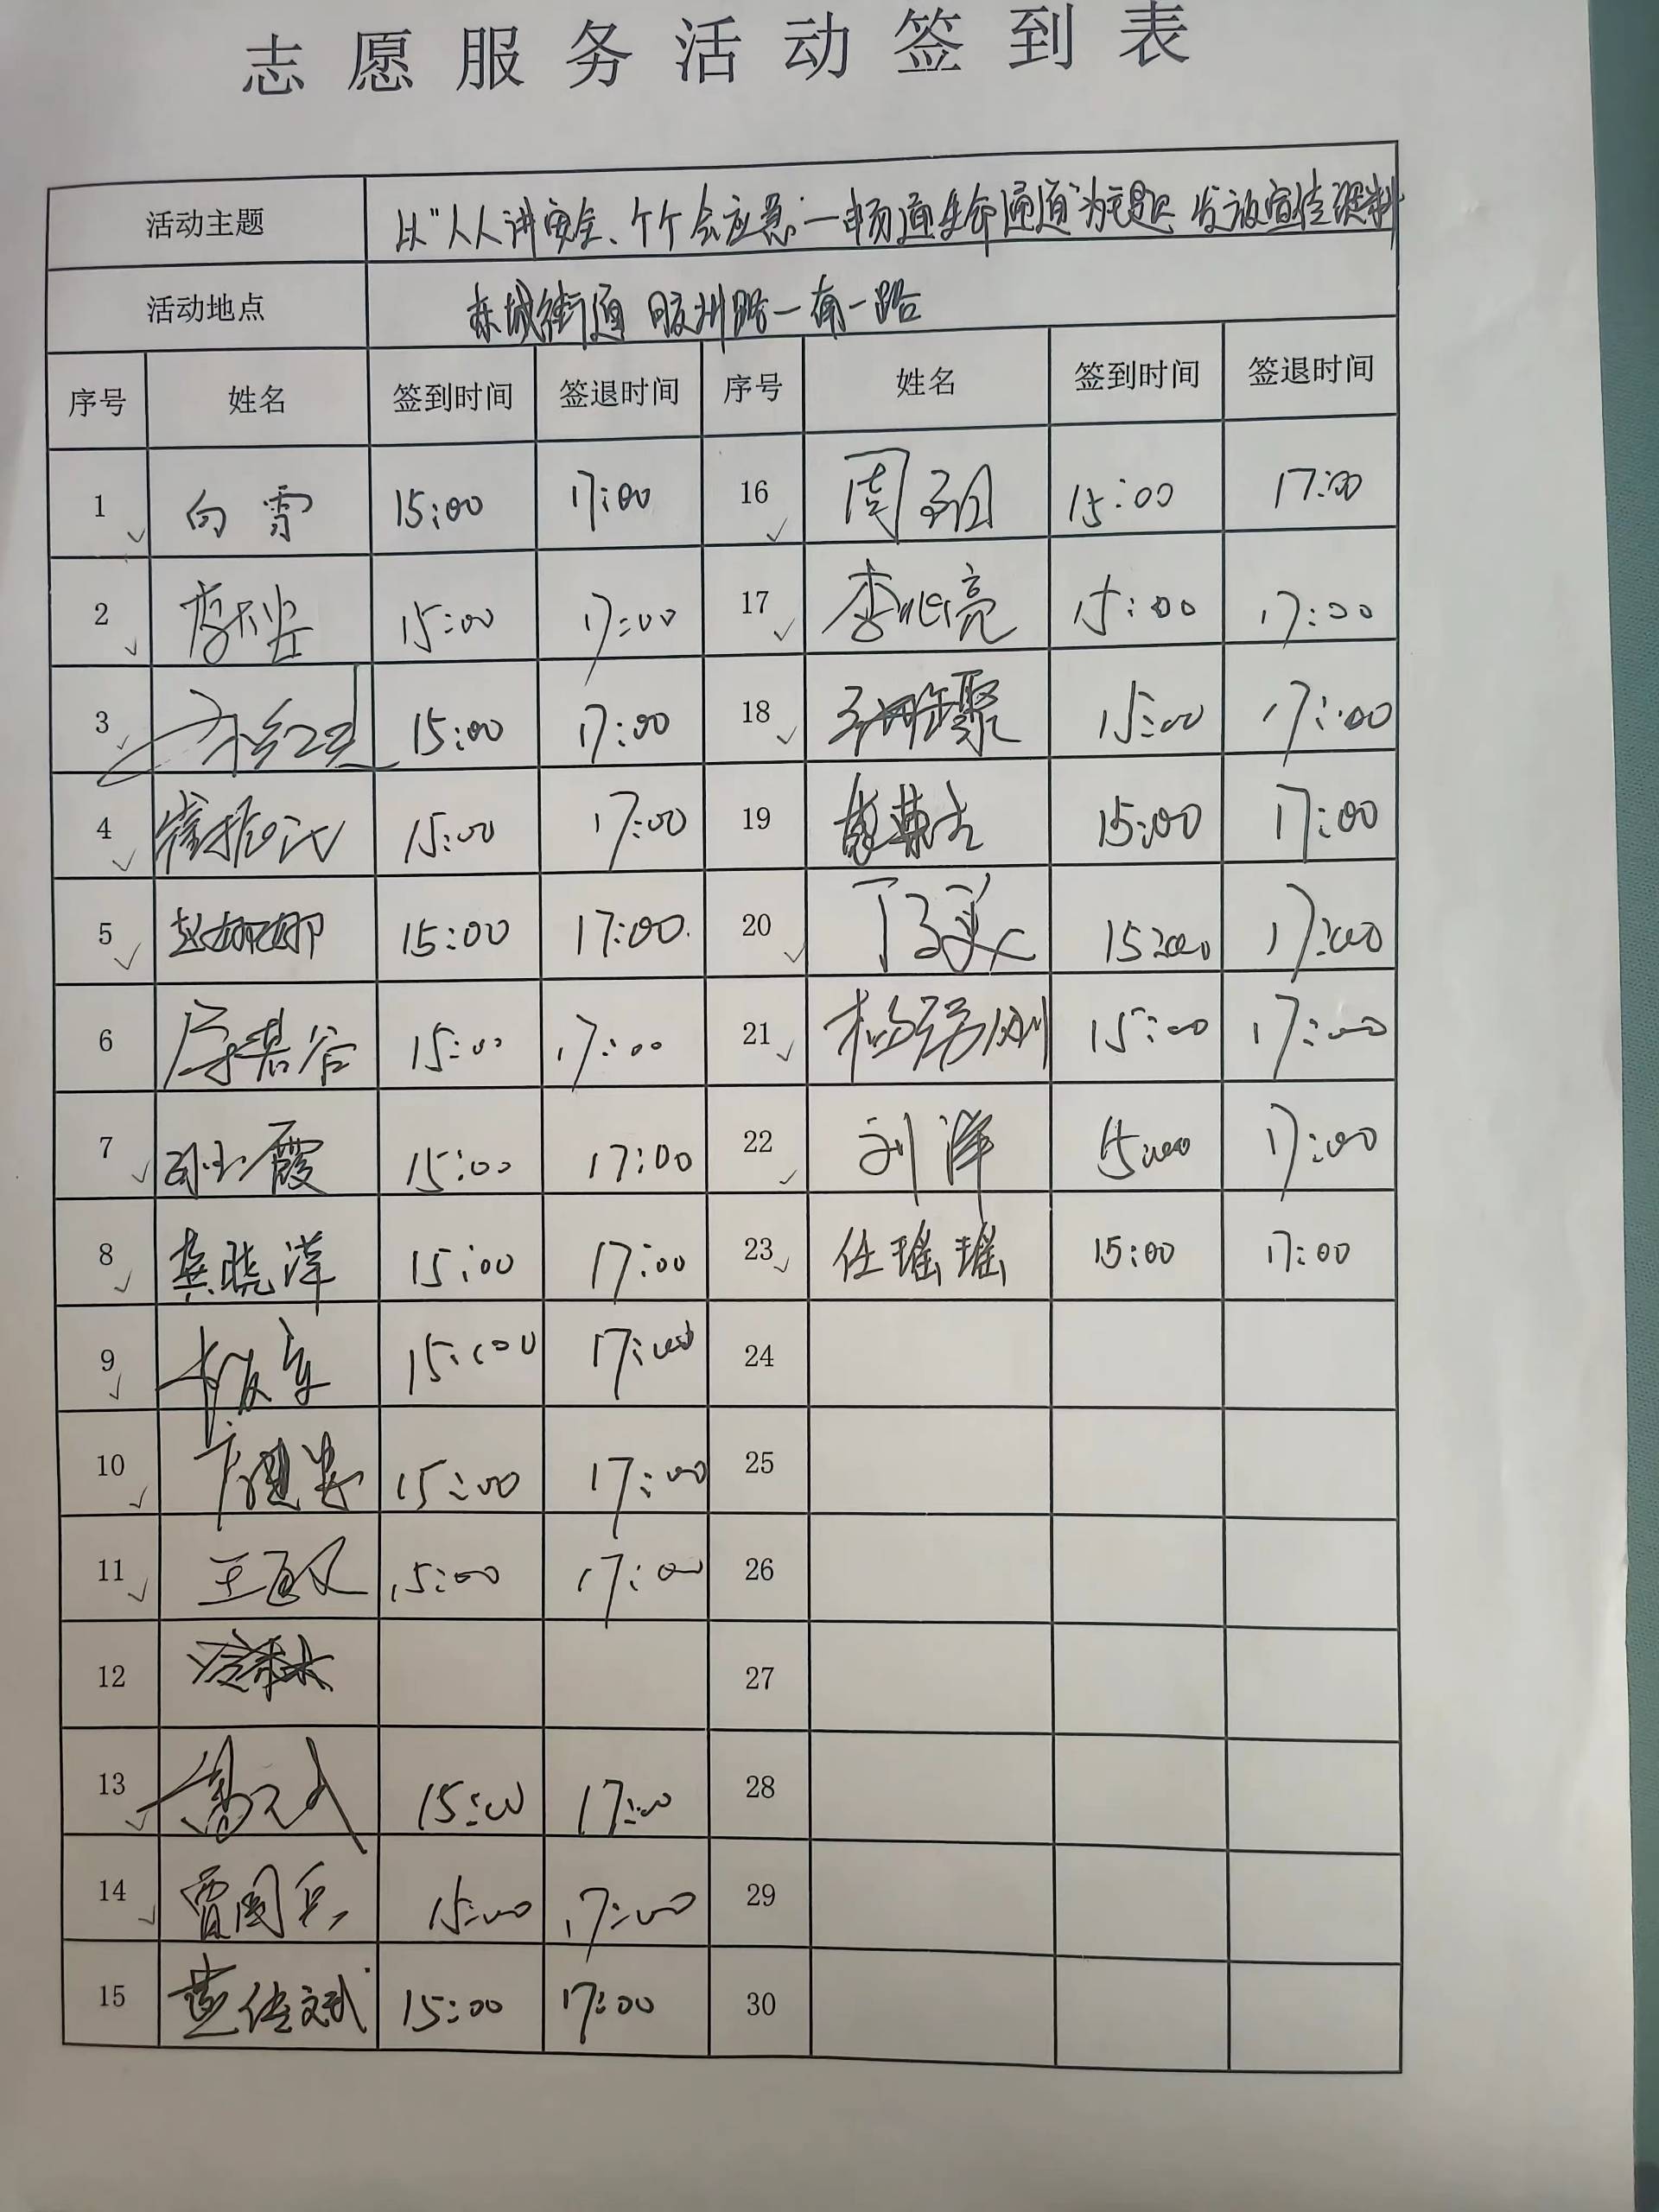 志愿服务活动签到表
活动主题 以"人人讲安全、个个会应急—畅通生命通道"为主题 发放宣传资料
活动地点 东城街道 胶州路—南一路
序号 姓名 签到时间 签退时间 序号 姓名 签到时间 签退时间
1 向雪 15:00 17:00 16 周 15:00 17:00
2 15:00 17:00 17 李兆亮 15:00 17:00
3 15:00 17:00 18 15:00 17:00
4 崔 15:00 17:00 19 15:00 17:00
5 赵娜娜 15:00 17:00 20 丁 15:00 17:00
6 15:00 17:00 21 杨 刚 15:00 17:00
7 霞 15:00 17:00 22 刘洋 15:00 17:00
8 龚晓洋 15:00 17:00 23 任瑶瑶 15:00 17:00
9 15:00 17:00 24
10 15:00 17:00 25
11 王 15:00 17:00 26
12 27
13 15:00 17:00 28
14 贾国兵 15:00 17:00 29
15 15:00 17:00 30